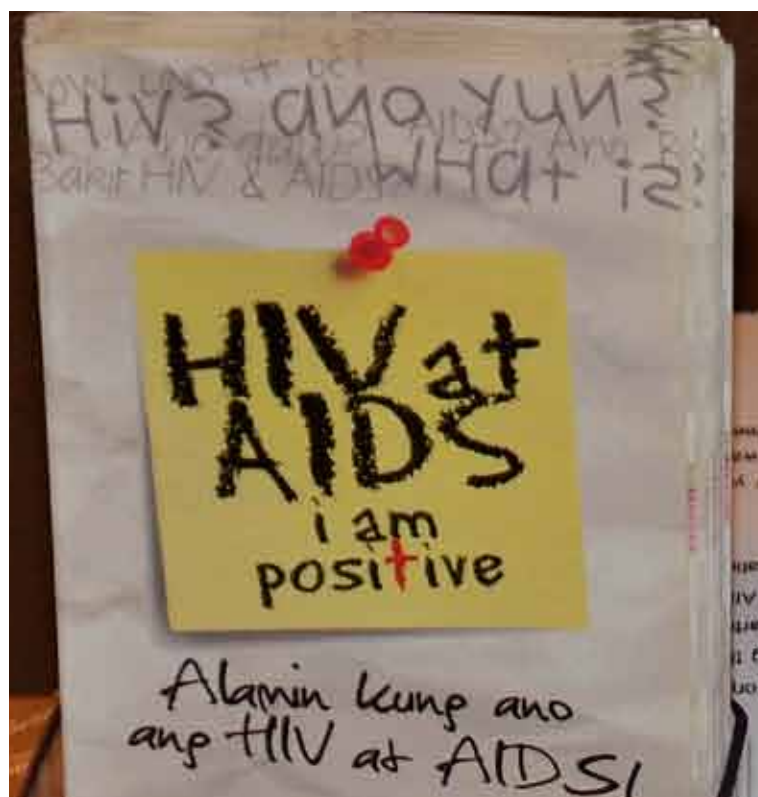 How can it be?
HiV? ano yun
Bakit HIV & AIDS?
wHat is?
HIV at
AIDS
i am
positive
Alamin kung ano
ang HIV at AIDS!